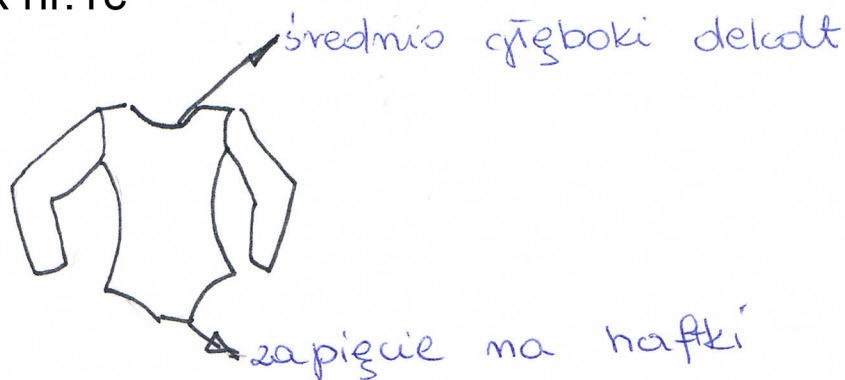 nr. 1c
średnio głęboki dekolt
zapięcie na haftki